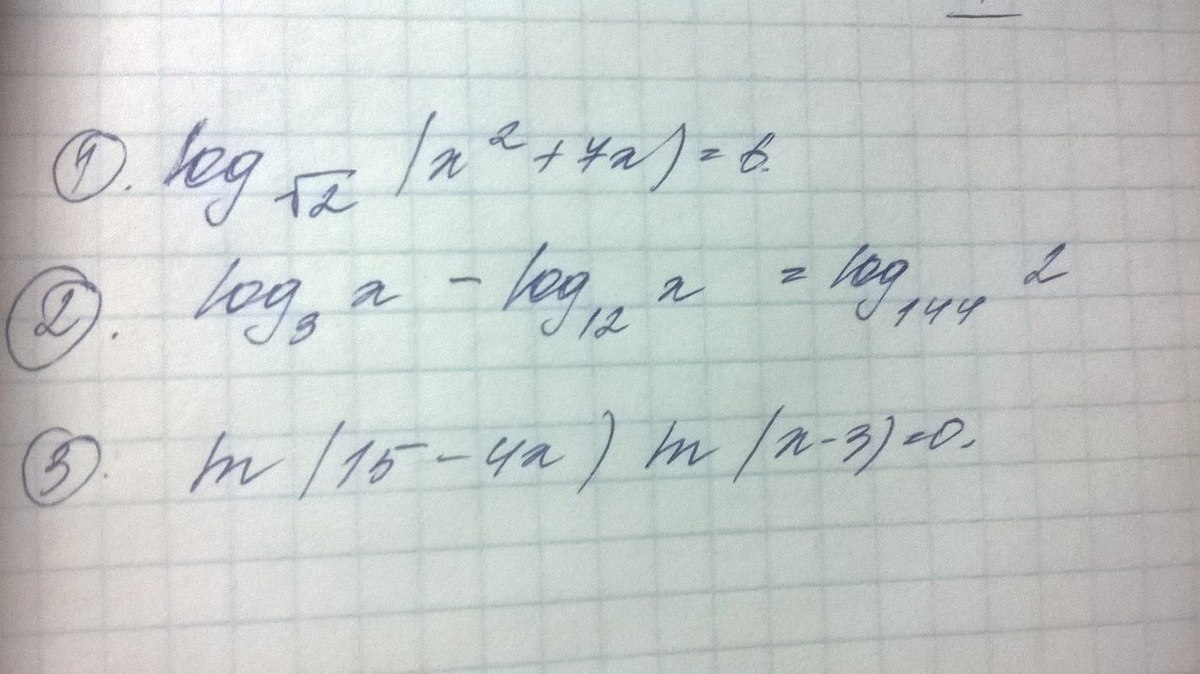 1. log√2 (x² + 7x) = 6.
2. log₃ x - log₁₂ x = log₁₄₄ 2
3. ln (15 - 4x) ln (x - 3) = 0.